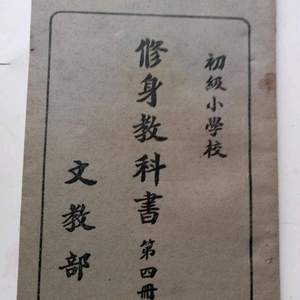 初級小學校
修身教科書 第四冊
文教部